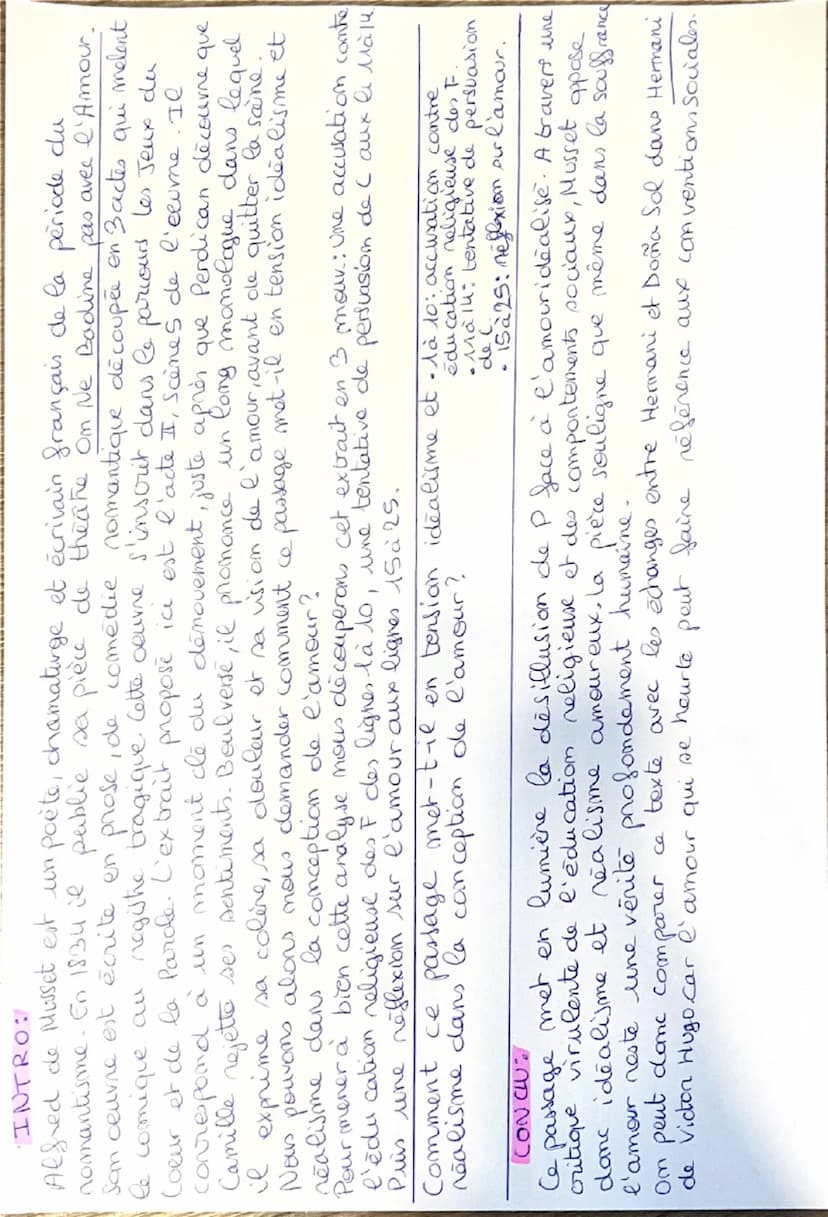 INTRO:
Alfred de Musset est un poète, dramaturge et écrivain français de la période du
romantisme. En 1834 il publie sa pièce de théâtre On Ne Badine pas avec l'Amour.
Son œuvre est écrite en prose, de comédie romantique découpée en 3 actes qui melent
le comique au registre tragique. Cette oeuvre s'inscrit dans le parcours les Jeux du
Cœur et de la Parole. L'extrait proposé ici est l'acte II, scène 5 de l'œuvre. Il
correspond à un moment clé du dénouement, juste après que Perdican découvre que
Camille rejette ses sentiments. Boulversé, il prononce un long monologue dans lequel
il exprime sa colère, sa douleur et sa vision de l'amour, avant de quitter la scène.
Nous pouvons alors nous demander comment ce passage met-il en tension idéalisme et
réalisme dans la conception de l'amour?
Pour mener à bien cette analyse nous découperons cet extrait en 3 mouv.: une accusation contre
l'éducation religieuse des F des lignes 1 à 10, une tentative de persuasion de C aux li 11 à 14
Puis une réflexion sur l'amour aux lignes 15 à 25.
Comment ce passage met-t-il en tension idéalisme et
réalisme dans la conception de l'amour?
• 1 à 10: accusation contre
éducation religieuse des F.
• 11 à 14: tentative de persuasion
de C
• 15 à 25: réflexion sur l'amour.
CONCLU:
Ce passage met en lumière la désillusion de P face à l'amour idéalisé. A travers une
critique virulente de l'éducation religieuse et des comportements sociaux, Musset oppose
donc idéalisme et réalisme amoureux. la pièce souligne que même dans la souffrance
l'amour reste une vérité profondement humaine.
On peut donc comparer ce texte avec les échanges entre Hernani et Doña Sol dans Hernani
de Victor Hugo car l'amour qui se heurte peut faire référence aux conventions sociales.